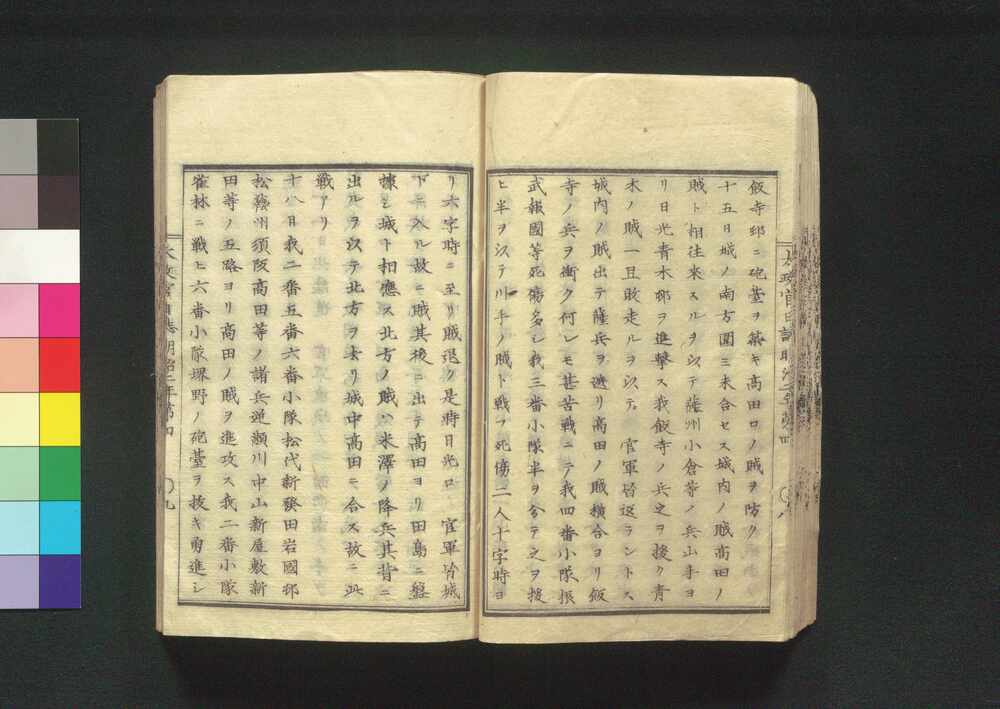 飯寺邨ニ砲䑓ヲ築キ高田口ノ賊ヲ防ク
十五日城ノ南方圍ミ未合セス城内ノ賊高田ノ
賊ト相往来スルヲ以テ薩州小倉等ノ兵山手ヨ
リ日光青木邨ヲ進撃ス我飯寺ノ兵之ヲ援ク青
木ノ賊一旦敗走ルヲ以テ 官軍皆返ラントス
城内ノ賊出テ薩兵ヲ遮リ高田ノ賊横合ヨリ飯
寺ノ兵ヲ衝ク何レモ甚苦戰ニテ我四番小隊振
武報國等死傷多シ我三番小隊半ヲ分テ之ヲ援
ヒ半ヲ以テ川手ノ賊ト戰フ死傷二人十字時ヨ
太政官日誌明治二年第四 〇八
リ六字時ニ至リ賊退ク是時日光口 官軍皆城
下ニ入ル故ニ賊其後ニ出テ高田ヨリ田島ニ盤
據シ城下相應ス北方ノ賊ハ米澤ノ降兵其背ニ
出ルヲ以テ北方ヲ去リ城中高田ニ合ス故ニ此
戰アリ
十八日我二番五番六番小隊松代新發田岩國邨
松藝州須阪高田等ノ諸兵逆瀬川中山新屋敷新
田等ノ五路ヨリ高田ノ賊ヲ進攻ス我二番小隊
雀林ニ戰ヒ六番小隊堺野ノ砲䑓ヲ抜キ勇進シ
太政官日誌明治二年第四 〇九